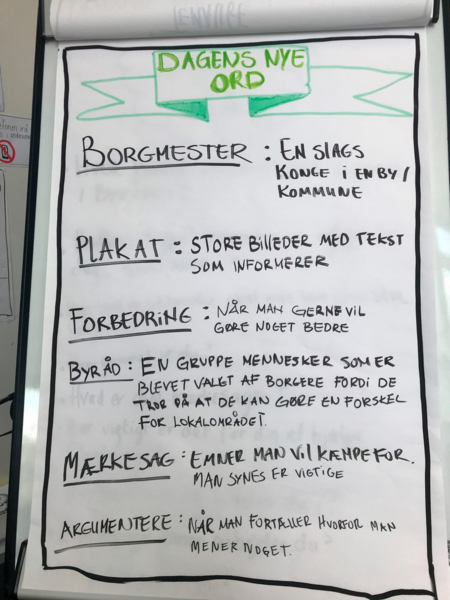 DAGENS NYE
ORD
BORGMESTER : EN SLAGS
KONGE I EN BY /
KOMMUNE
PLAKAT : STORE BILLEDER MED TEKST
SOM INFORMERER
FORBEDRING : NÅR MAN GERNE VIL
GØRE NOGET BEDRE
BYRÅD : EN GRUPPE MENNESKER SOM ER
BLEVET VALGT AF BORGERE FORDI DE
TROR PÅ AT DE KAN GØRE EN FORSKEL
FOR LOKALOMRÅDET.
MÆRKESAG : EMNER MAN VIL KÆMPE FOR.
MAN SYNES ER VIGTIGE
ARGUMENTERE : NÅR MAN FORTÆLLER HVORFOR MAN
MENER NOGET.